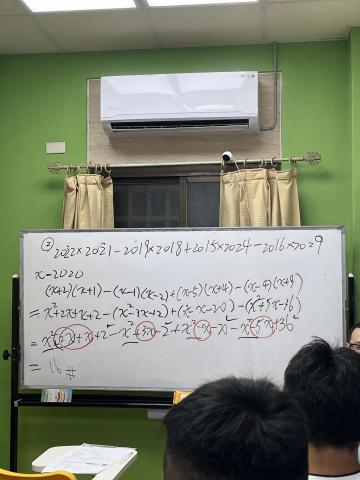 ② 2022×2021-2019×2018+2015×2024-2016×2029
x=2020
(x+2)(x+1)-(x-1)(x-2)+(x-5)(x+4)-(x-4)(x+9)
=x²+2x+x+2-(x²-3x+2)+(x²-x-20)-(x²+5x-36)
=x²+2x+x+2-x²+3x-2+x²-x-20-x²-5x+36
=16#